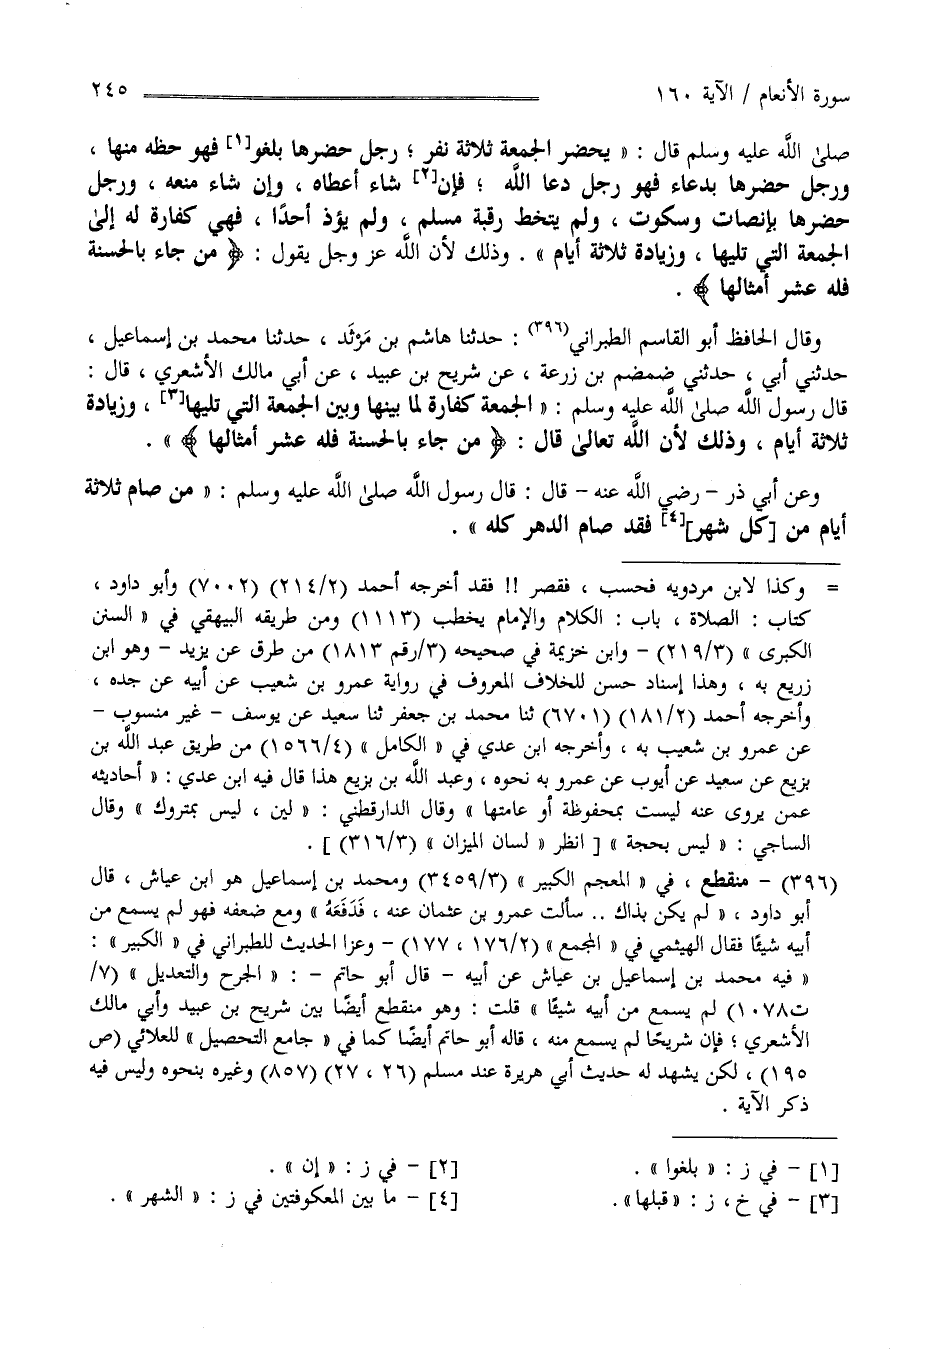 سورة الأنعام / الآية ١٦٠ ٢٤٥
صلى الله عليه وسلم قال : « يحضر الجمعة ثلاثة نفر ؛ رجل حضرها بلغو[١] فهو حظه منها ،
ورجل حضرها بدعاء فهو رجل دعا الله ؛ فإن[٢] شاء أعطاه ، وإن شاء منعه ، ورجل
حضرها بإنصات وسكوت ، ولم يتخط رقبة مسلم ، ولم يؤذ أحدًا ، فهي كفارة له إلى
الجمعة التي تليها ، وزيادة ثلاثة أيام » . وذلك لأن الله عز وجل يقول : ﴿ من جاء بالحسنة
فله عشر أمثالها ﴾ .
وقال الحافظ أبو القاسم الطبراني(٣٩٦) : حدثنا هاشم بن مَرْثَد ، حدثنا محمد بن إسماعيل ،
حدثني أبي ، حدثني ضمضم بن زرعة ، عن شريح بن عبيد ، عن أبي مالك الأشعري ، قال :
قال رسول الله صلى الله عليه وسلم : « الجمعة كفارة لما بينها وبين الجمعة التي تليها[٣] ، وزيادة
ثلاثة أيام ، وذلك لأن الله تعالى قال : ﴿ من جاء بالحسنة فله عشر أمثالها ﴾ » .
وعن أبي ذر - رضي الله عنه - قال : قال رسول الله صلى الله عليه وسلم : « من صام ثلاثة
أيام من [كل شهر][٤] فقد صام الدهر كله » .
= وكذا لابن مردويه فحسب ، فقصر !! فقد أخرجه أحمد (٢١٤/٢) (٧٠٠٢) وأبو داود ،
كتاب : الصلاة ، باب : الكلام والإمام يخطب (١١١٣) ومن طريقه البيهقي في « السنن
الكبرى » (٢١٩/٣) - وابن خزيمة في صحيحه (٣/رقم ١٨١٣) من طرق عن يزيد - وهو ابن
زريع به ، وهذا إسناد حسن للخلاف المعروف في رواية عمرو بن شعيب عن أبيه عن جده ،
وأخرجه أحمد (١٨١/٢) (٦٧٠١) ثنا محمد بن جعفر ثنا سعيد عن يوسف - غير منسوب -
عن عمرو بن شعيب به ، وأخرجه ابن عدي في « الكامل » (١٥٦٦/٤) من طريق عبد الله بن
بزيع عن سعيد عن أيوب عن عمرو به نحوه ، وعبد الله بن بزيع هذا قال فيه ابن عدي : « أحاديثه
عمن يروى عنه ليست بمحفوظة أو عامتها » وقال الدارقطني : « لين ، ليس بمتروك » وقال
الساجي : « ليس بحجة » [ انظر « لسان الميزان » (٣١٦/٣) ] .
(٣٩٦) - منقطع ، في « المعجم الكبير » (٣٤٥٩/٣) ومحمد بن إسماعيل هو ابن عياش ، قال
أبو داود ، « لم يكن بذاك .. سألت عمرو بن عثمان عنه ، فَدَفَعَهُ » ومع ضعفه فهو لم يسمع من
أبيه شيئًا فقال الهيثمي في « المجمع » (١٧٦/٢ ، ١٧٧) - وعزا الحديث للطبراني في « الكبير » :
« فيه محمد بن إسماعيل بن عياش عن أبيه - قال أبو حاتم - : « الجرح والتعديل » (٧/
ت١٠٧٨) لم يسمع من أبيه شيئًا » قلت : وهو منقطع أيضًا بين شريح بن عبيد وأبي مالك
الأشعري ؛ فإن شريحًا لم يسمع منه ، قاله أبو حاتم أيضًا كما في « جامع التحصيل » للعلائي (ص
١٩٥) ، لكن يشهد له حديث أبي هريرة عند مسلم (٢٦ ، ٢٧) (٨٥٧) وغيره بنحوه وليس فيه
ذكر الآية .
[١] - في ز : « بلغوا » . [٢] - في ز : « إن » .
[٣] - في خ ، ز : «قبلها» . [٤] - ما بين المعكوفتين في ز : « الشهر » .